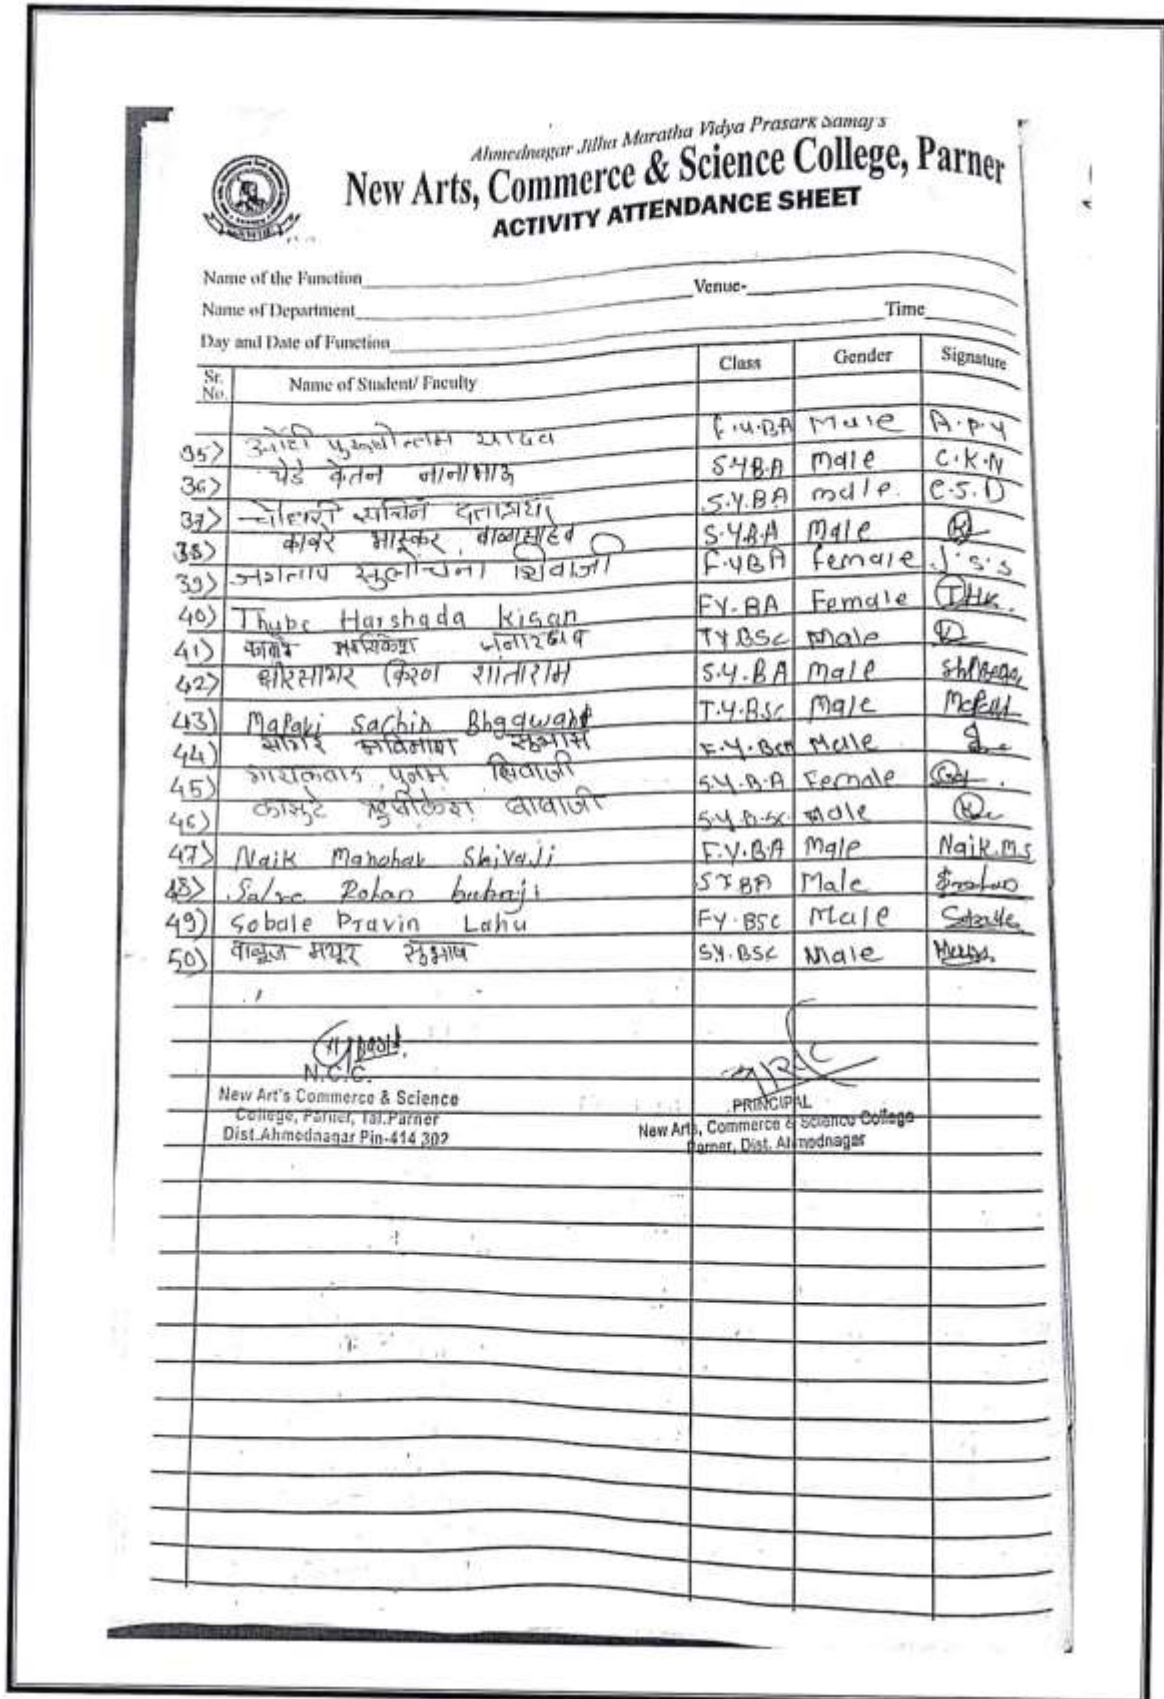 Ahmednagar Jilha Maratha Vidya Prasark Samaj's
New Arts, Commerce & Science College, Parner
ACTIVITY ATTENDANCE SHEET
Name of the Function Venue-
Name of Department Time
Day and Date of Function
Sr. No. Name of Student/ Faculty Class Gender Signature
35) पुरुषोत्तम यादव F.Y.BA Male A.P.Y
36) येडे केतन नानाभाऊ S.Y.B.A male C.K.N
37) चौधरी सचिन दत्तात्रय S.Y.BA male. C.S.D
38) कावरे भास्कर बाळासाहेब S.Y.B.A Male
39) जगताप सुलोचना शिवाजी F.YBA female J.S.S
40) Thube Harshada Kisan FY.BA Female THK.
41) T.Y.BSc Male
42) क्षीरसागर किरण शांताराम S.Y.BA male
43) Malavi Sachin Bhagwant T.Y.BSc Male
44) अविनाश सुभाष F.Y. Male
45) गायकवाड पुनम शिवाजी S.Y.B.A Female
46) कासुटे ऋषीकेश बाबाजी S.Y.B.SC Male
47) Naik Manohar Shivaji F.Y.BA Male Naik.M.S
48) Salve Rohan babaji SYBA Male
49) Sobale Pravin Lahu FY.BSC Male
50) वाळूज मयूर सुभाष SY.BSC Male
N.C.C.
New Art's Commerce & Science
College, Parner, Tal.Parner
Dist.Ahmednagar Pin-414 302
PRINCIPAL
New Arts, Commerce & Science College
Parner, Dist. Ahmednagar